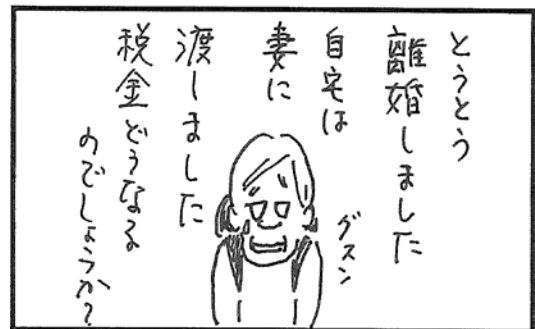 とうとう
離婚しました
自宅は
妻に
渡しました
税金どうなる
のでしょうか?
グスン